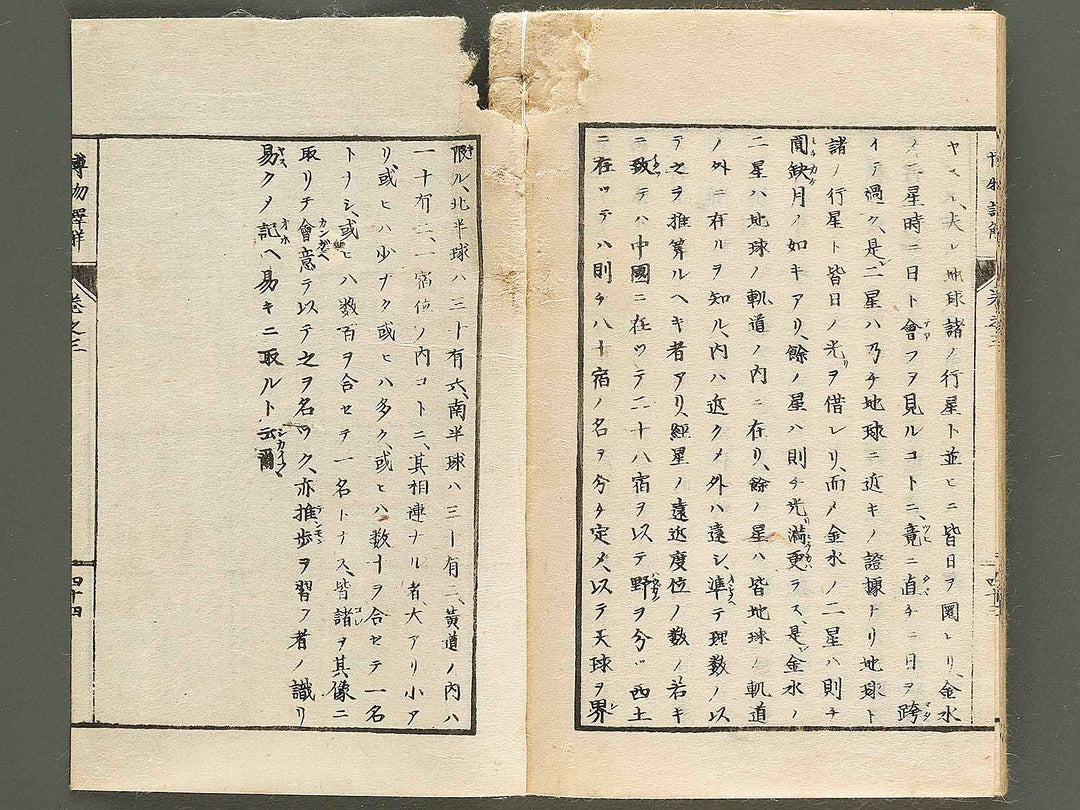 ヤスシ、夫レ地球諸ノ行星ト並ヒニ皆日ヲ圍レリ、金水
ノ二星時ニ日ト會フヲ見ルコトニ、竟ニ直チニ日ヲ跨
イテ過ク、是レ二星ハ乃チ地球ニ近キノ證據トナリ地球ト
諸ノ行星ト皆日ノ光リヲ借レリ、而メ金水ノ二星ハ則チ
間缺月ノ如キアリ、餘ノ星ハ則チ光滿更ラス、是レ金水ノ
二星ハ地球ノ軌道ノ内ニ在リ、餘ノ星ハ皆地球ノ軌道
ノ外ニ在ルヲ知ル、内ハ近クメ外ハ遠シ、準テ理数ノ以
テ之ヲ推算ルヘキ者アリ、經星ノ遠近度位ノ数ノ若キ
ニ致テハ中國ニ在ツテ二十八宿ヲ以テ野ヲ分ツ西土
ニ在ツテハ則チ八十宿ノ名ヲ分チ定メ、以テ天球ヲ界
限ル、北半球ハ三十有六、南半球ハ三十有二、黄道ノ内ハ
一十有二、一宿位ノ内コトニ、其相連ナル者、大アリ小ア
リ、或ヒハ少ナク或ヒハ多ク、或ヒハ数十ヲ合セテ一名
トナシ、或ヒハ数百ヲ合セテ一名トナス、皆諸ヲ其像ニ
取リテ會意テ以テ之ヲ名ツク、亦推歩ヲ習フ者ノ識リ
易クメ記ヘ易キニ取ルト云爾
博物譯解
卷之三
四十四